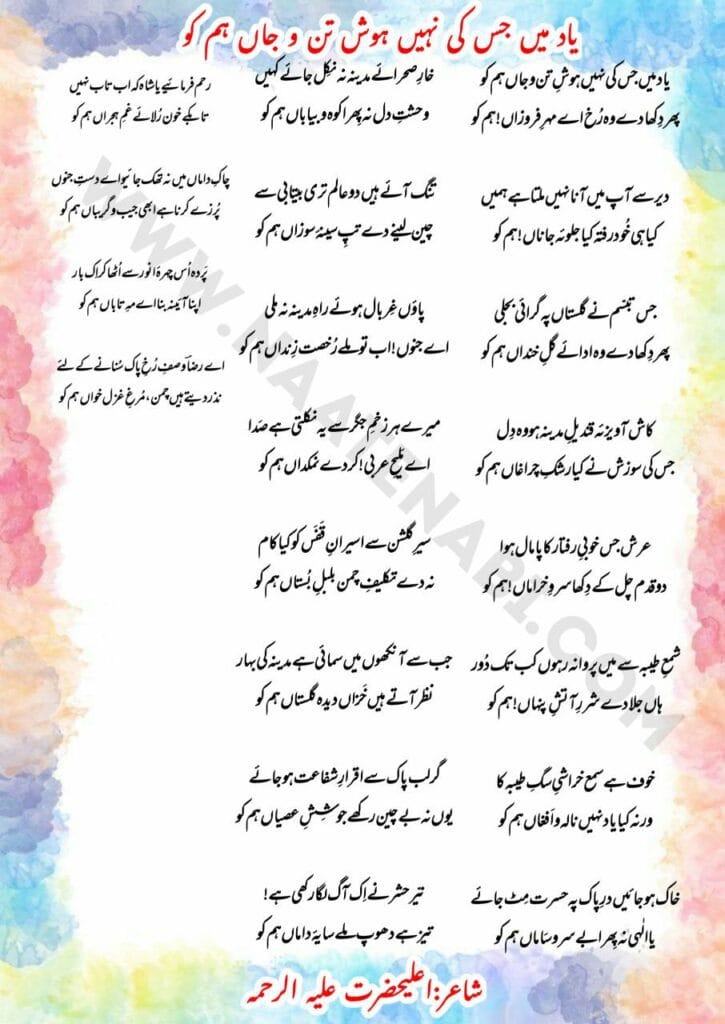 یاد میں جس کی نہیں ہوش تن و جاں ہم کو
یاد میں جس کی نہیں ہوشِ تن و جاں ہم کو
پھر دِکھا دے وہ رُخ اے مہرِ فروزاں! ہم کو
دیر سے آپ میں آنا نہیں ملتا ہے ہمیں
کیا ہی خُود رفتہ کیا جلوۂ جاناں! ہم کو
جس تبسّم نے گلستاں پہ گرائی بجلی
پھر دِکھا دے وہ ادائے گلِ خنداں ہم کو
کاش آویزۂ قندیلِ مدینہ ہو وہ دِل
جس کی سوزش نے کیا رشکِ چراغاں ہم کو
عرش جس خوبیِ رفتار کا پامال ہوا
دو قدم چل کے دِکھا سروِ خراماں! ہم کو
شمعِ طیبہ سے میں پروانہ رہوں کب تک دُور
ہاں جلا دے شررِ آتشِ پنہاں! ہم کو
خوف ہے سمع خراشیِ سگِ طیبہ کا
ورنہ کیا یاد نہیں نالہ و اَفغاں ہم کو
خاک ہو جائیں درِ پاک پہ حسرت مِٹ جائے
یا الٰہی نہ پھرا بے سر و ساماں ہم کو
خارِ صحرائے مدینہ نہ نِکل جائے کہیں
وحشتِ دل نہ پِھرا کوہ و بیاباں ہم کو
تنگ آئے ہیں دو عالم تری بیتابی سے
چین لینے دے تپِ سینۂ سوزاں ہم کو
پاؤں غِربال ہوئے راہِ مدینہ نہ ملی
اے جنوں! اب تو ملے رُخصتِ زِنداں ہم کو
میرے ہر زخمِ جگر سے یہ نکلتی ہے صَدا
اے ملیحِ عربی! کر دے نمکداں ہم کو
سیرِ گلشن سے اسیرانِ قَفَس کو کیا کام
نہ دے تکلیفِ چمن بلبلِ بُستاں ہم کو
جب سے آنکھوں میں سمائی ہے مدینہ کی بہار
نظر آتے ہیں خَزاں دیدہ گلستاں ہم کو
گر لبِ پاک سے اقرارِ شفاعت ہو جائے
یوں نہ بے چین رکھے جوشِشِ عصیاں ہم کو
نیّرِ حشر نے اِک آگ لگا رکھی ہے!
تیز ہے دھوپ ملے سایۂ داماں ہم کو
رحم فرمائیے یا شاہ کہ اب تاب نہیں
تابکے خون رُلائے غمِ ہجراں ہم کو
چاکِ داماں میں نہ تھک جائیو اے دستِ جنوں
پُرزے کرنا ہے ابھی جیب و گریباں ہم کو
پَردہ اُس چہرۂ انور سے اُٹھا کر اک بار
اپنا آئینہ بنا اے مہِ تاباں ہم کو
اے رضاؔ وصفِ رُخِ پاک سُنانے کے لئے
نذر دیتے ہیں چمن، مُرغِ غزل خواں ہم کو
شاعر:اعلیحضرت علیہ الرحمہ
WWW.NAATENABI.COM